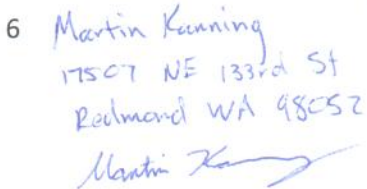 6 Martin Kanning
17507 NE 133rd St
Redmond WA 98052
Martin Kanning